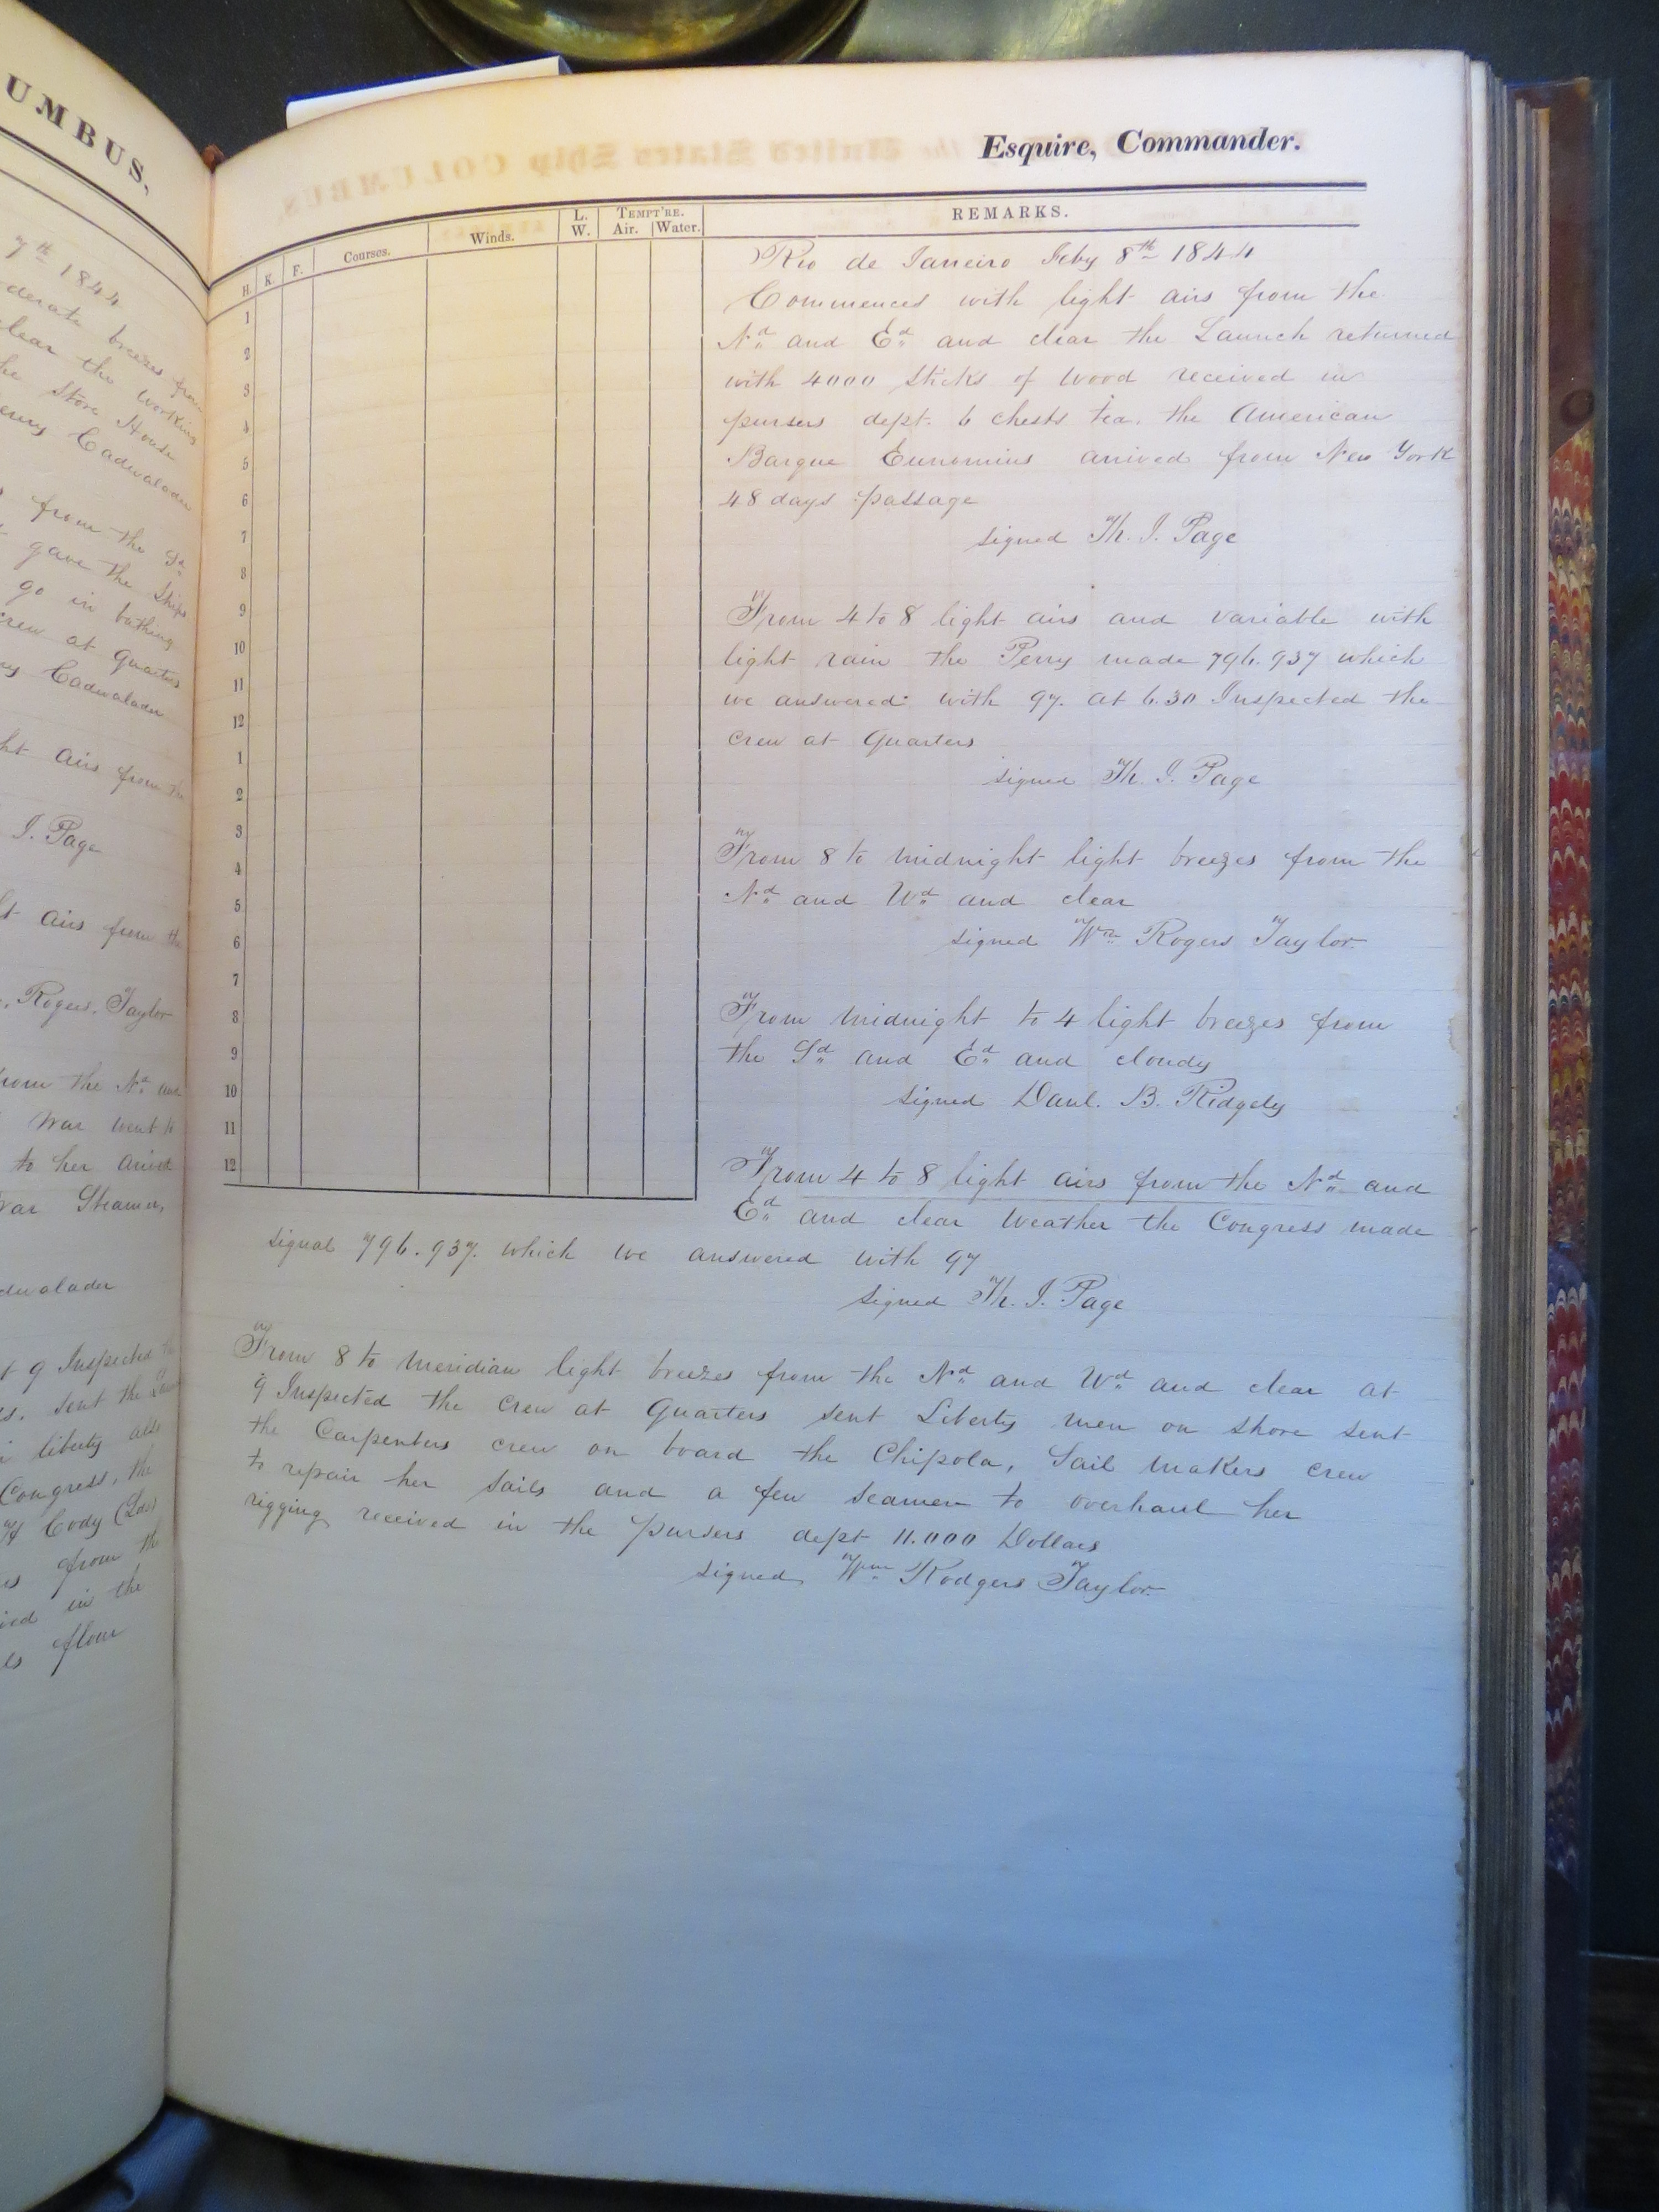 UMBUS,
7th 1844
derate breezes from
clear the working
the Store House
Cadwalader
from the Sd
gave the Ships
go in bathing
crew at Quarters
Cadwalader
ht airs from the
I. Page
airs from the
Rogers Taylor
from the Nd and
War went to
to her
War Steamer,
dwalader
9 Inspected
sent the
liberty also
Congress, the
Cody
from the
in the
flour
Esquire, Commander.
H. K. F. Courses. Winds. L. W. TEMPT'RE. Air. Water. REMARKS.
1
2
3
4
5
6
7
8
9
10
11
12
1
2
3
4
5
6
7
8
9
10
11
12
Rio de Janeiro Feby 8th 1844
Commences with light airs from the
Nd and Ed and clear the Launch returned
with 4000 sticks of wood received in
pursers dept. 6 chests tea. the American
Barque Eunomius arrived from New York
48 days passage
signed Th. J. Page
From 4 to 8 light airs and variable with
light rain the Perry made 796.937 which
we answered with 97. at 6.30 Inspected the
crew at Quarters
signed Th. J. Page
From 8 to midnight light breezes from the
Nd and Wd and clear
signed Wm Rogers Taylor
From midnight to 4 light breezes from
the Sd and Ed and cloudy
signed Danl. B. Ridgely
From 4 to 8 light airs from the Nd and
Ed and clear weather the Congress made
signal 796.937. which we answered with 97
signed Th. J. Page
From 8 to Meridian light breezes from the Nd and Wd and clear at
9 Inspected the crew at Quarters sent Liberty men on shore sent
the Carpenters crew on board the Chipola, Sail makers crew
to repair her sails and a few seamen to overhaul her
rigging received in the pursers dept 11.000 Dollars
signed Wm Rodgers Taylor